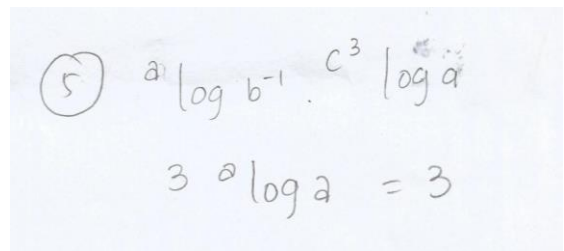 5 ᵃlog b⁻¹ . c³ log a
3 ᵃlog a = 3